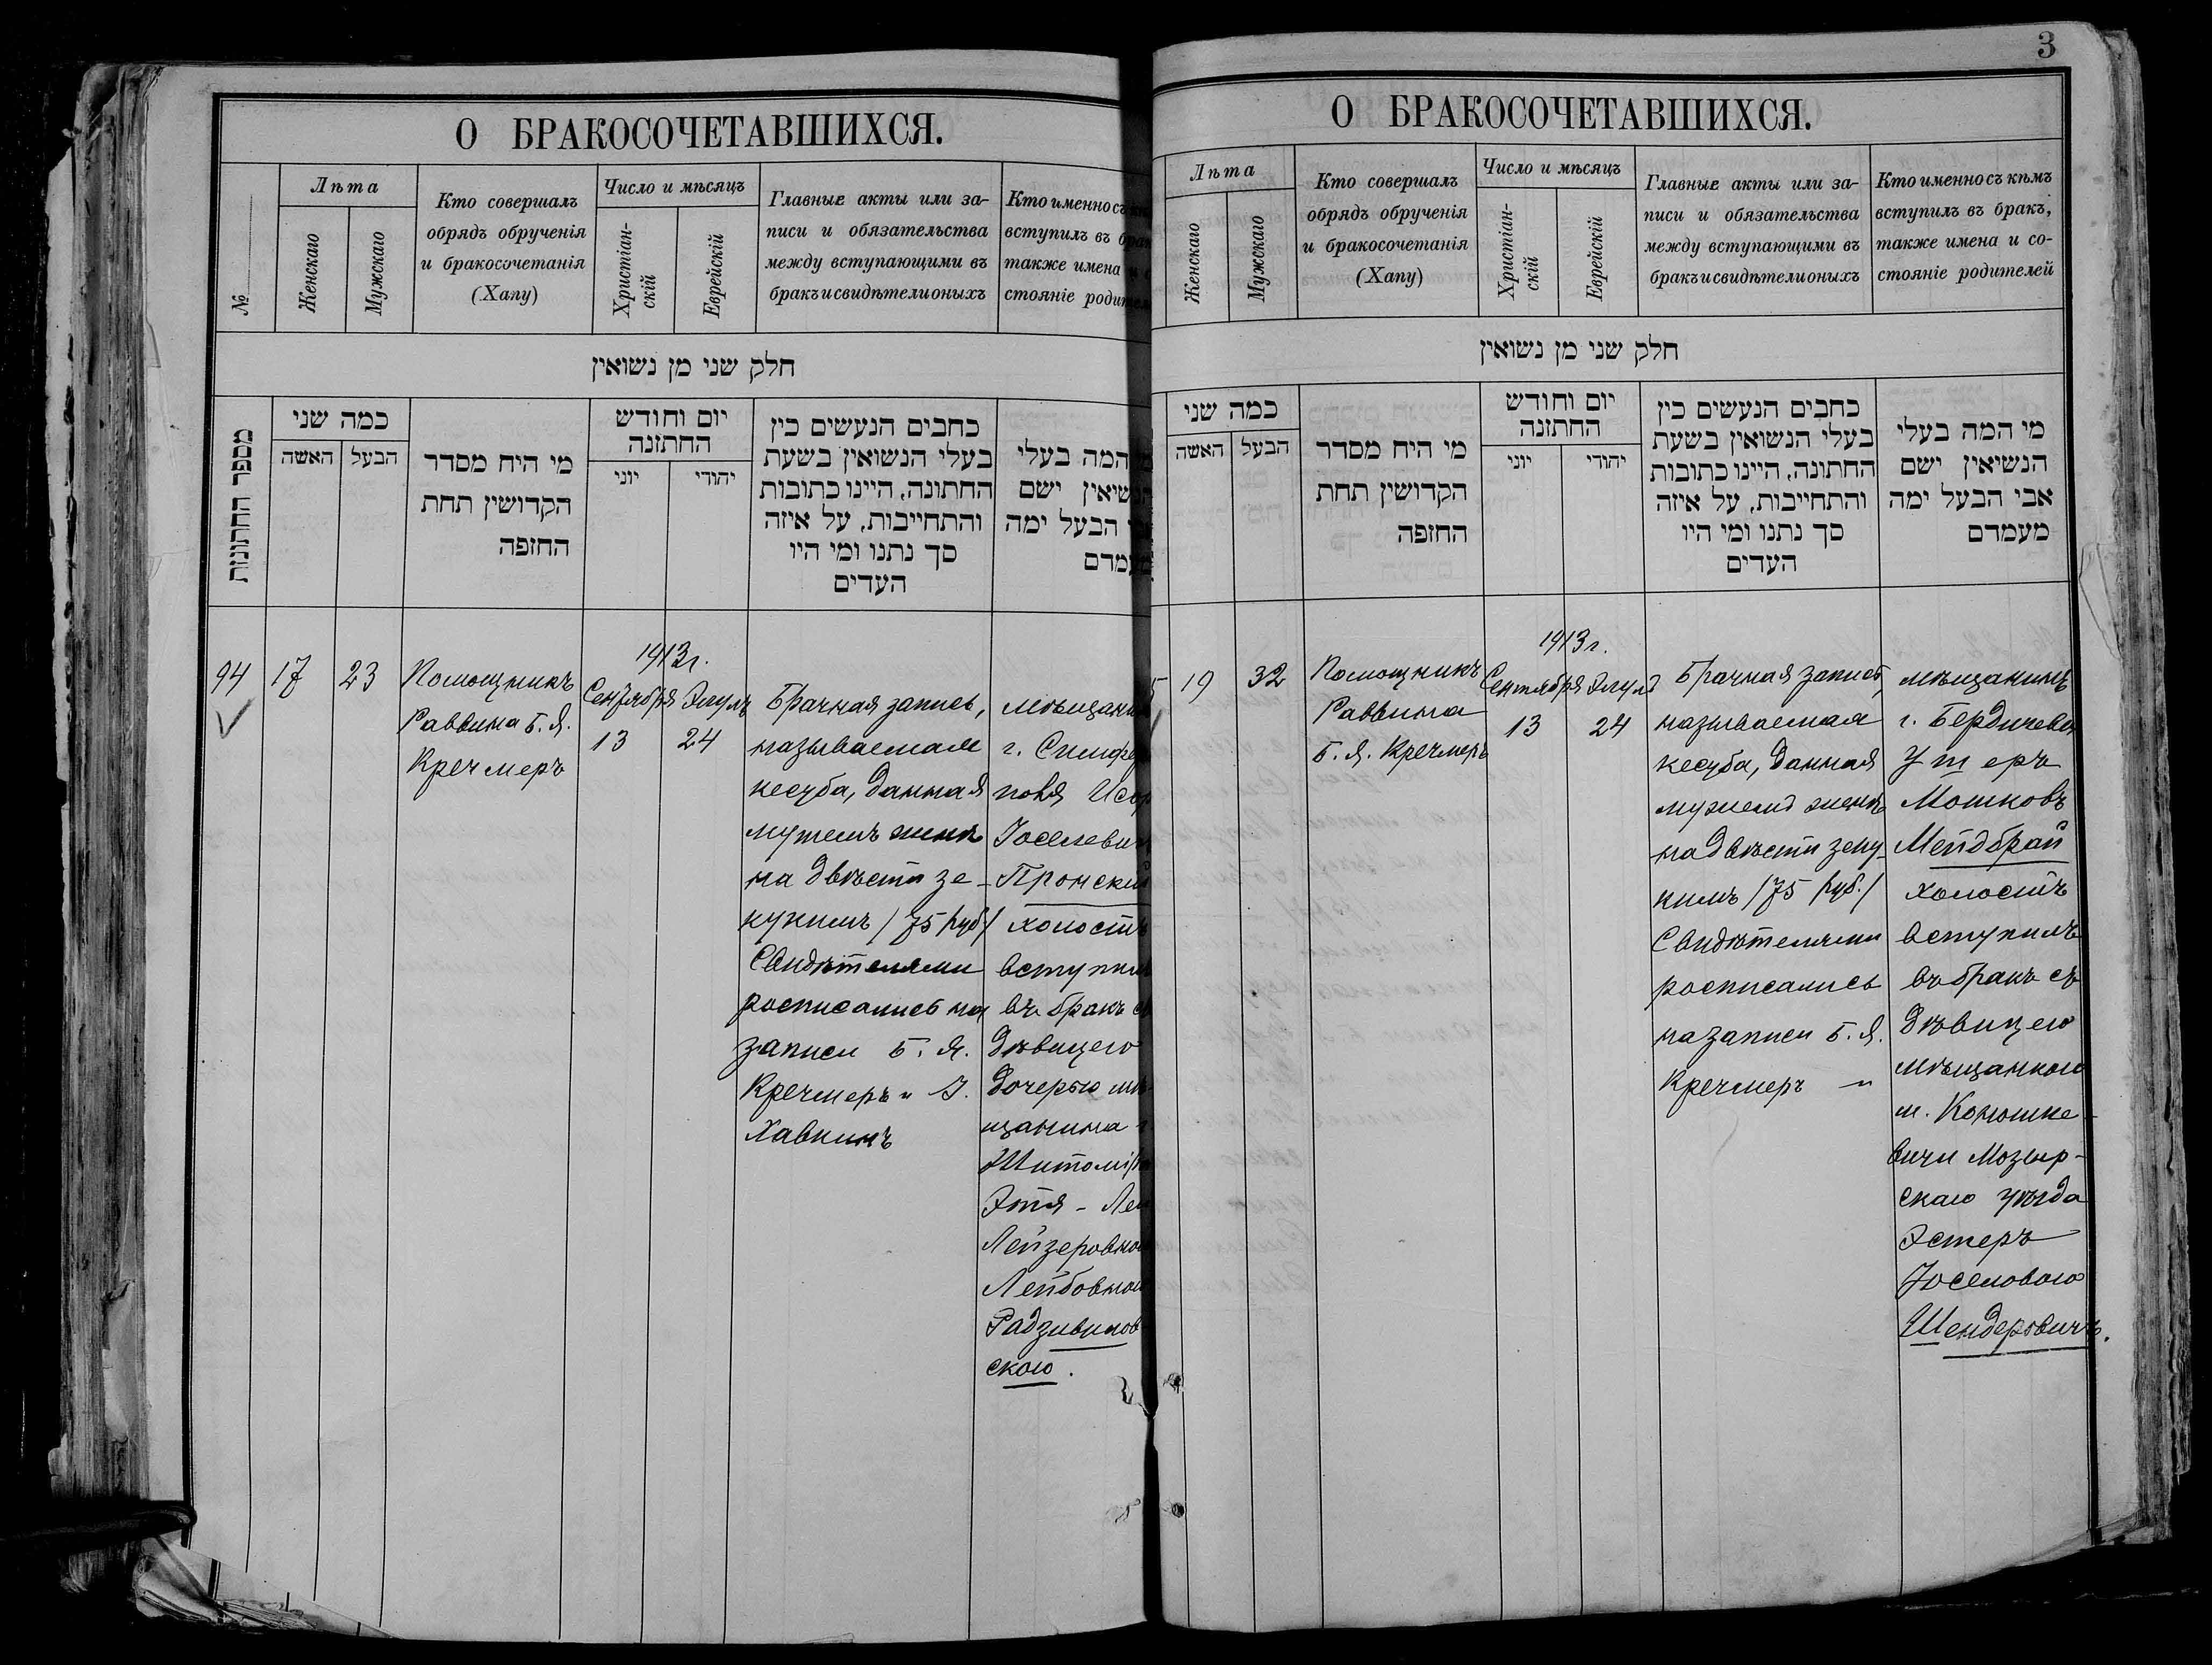 О БРАКОСОЧЕТАВШИХСЯ.
№
Лѣта
Женскаго
Мужскаго
Кто совершалъ
обрядъ обрученія
и бракосочетанія
(Хапу)
Число и мѣсяцъ
Христіан-
скій
Еврейскій
Главные акты или за-
писи и обязательства
между вступающими въ
бракъ и свидѣтели оныхъ
Кто именно съ
вступилъ въ
также имена
стояніе
חלק שני מן נשואין
מספר החתונות
כמה שני
האשה
הבעל
מי היח מסדר
הקדושין תחת
החופה
יום וחודש
החתונה
יוני
יהודי
כחבים הנעשים כין
בעלי הנשואין בשעת
החתונה, היינו כתובות
והתחייבות, על איזה
סך נתנו ומי היו
העדים
המה בעלי
ישם
הבעל ימה
94
17
23
Помощникъ
Раввина Б. Я.
Кречмеръ
1913 г.
Сентября Элулъ
13 24
Брачная запись,
называемая
кесуба, данная
мужемъ женѣ
на двѣсти зе-
кукимъ /75 руб/
Свидѣтелями
росписались на
записи Б. Я.
Кречмеръ и
Хавкинъ
г.
Пронскій
холостъ
вступилъ
въ бракъ съ
дѣвицею
дочерью мѣ-
щанина
Этя -
Лейзеровною
Лейбовною
Радзивилов
скою.
3
О БРАКОСОЧЕТАВШИХСЯ.
Лѣта
Женскаго
Мужскаго
Кто совершалъ
обрядъ обрученія
и бракосочетанія
(Хапу)
Число и мѣсяцъ
Христіан-
скій
Еврейскій
Главные акты или за-
писи и обязательства
между вступающими въ
бракъ и свидѣтели оныхъ
Кто именно съ кѣмъ
вступилъ въ бракъ,
также имена и со-
стояніе родителей
חלק שני מן נשואין
כמה שני
האשה
הבעל
מי היח מסדר
הקדושין תחת
החופה
יום וחודש
החתונה
יוני
יהודי
כחבים הנעשים כין
בעלי הנשואין בשעת
החתונה, היינו כתובות
והתחייבות, על איזה
סך נתנו ומי היו
העדים
מי המה בעלי
הנשיאין ישם
אבי הבעל ימה
מעמדם
5
19
32
Помощникъ
Раввина
Б. Я. Кречмеръ
1913 г.
Сентября Элулъ
13 24
Брачная запись,
называемая
кесуба, данная
мужемъ женѣ
на двѣсти зеку-
кимъ /75 руб./
Свидѣтелями
росписались
на записи Б. Я.
Кречмеръ и
мѣщанинъ
г. Бердичева
Ушеръ
Мошковъ
Мейдбрай
холостъ
вступилъ
въ бракъ съ
дѣвицею
мѣщанкою
м.
Мозыр-
скаго уѣзда
Эстеръ
Іоселовою
Шендеровичъ.